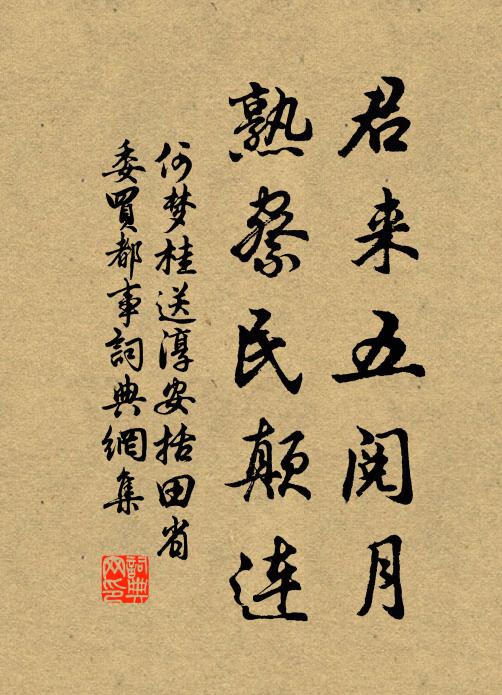 君来五阅月
熟察民颠连
何梦桂送淳安括田省
委買都事詞典網集
詞典網印